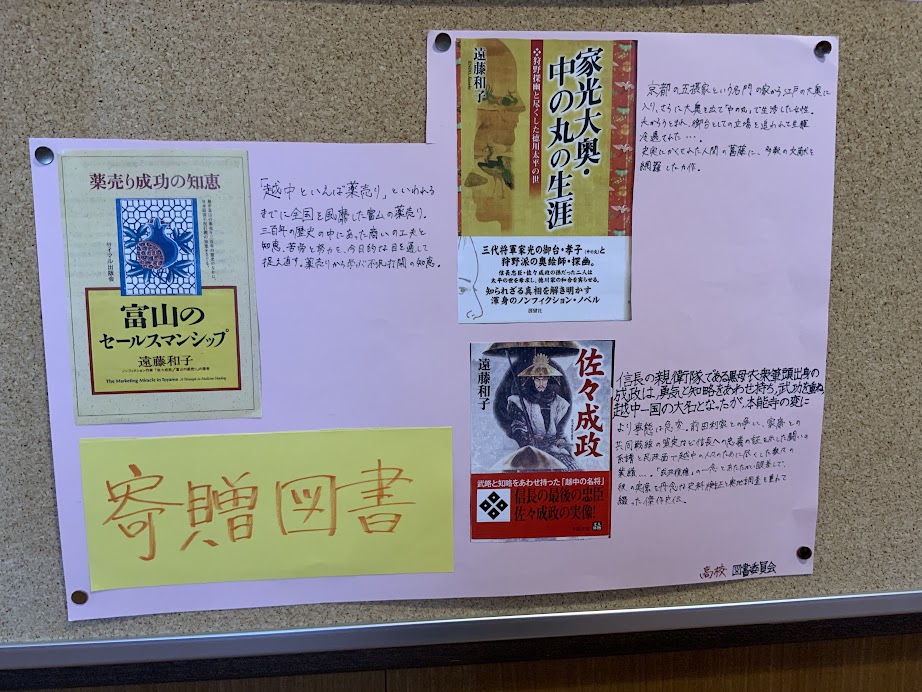 薬売り成功の知恵
サイマル出版会
富山の
セールスマンシップ
遠藤和子
The Marketing Miracle in Toyama
「越中といえば薬売り」といわれる
までに全国を風靡した富山の薬売り。
三百年の歴史の中にあった商いの工夫と
知恵、苦労と努力を、今日的な目を通して
捉え直す。薬売りから学ぶ不況打開の知恵。
寄贈図書
家光大奥・
中の丸の生涯
❖狩野探幽と尽くした徳川太平の世
遠藤和子
三代将軍家光の御台・孝子(中の丸)と
狩野派の奥絵師・探幽。
信長忠臣・佐々成政の孫だった二人は
太平の世を希求し、徳川家の和合を実らせる。
知られざる真相を解き明かす
渾身のノンフィクション・ノベル
展望社
京都の五摂家という名門の家から江戸の大奥に
入り、さらに大奥を出て「中の丸」で生活した女性。
夫からうとまれ、御台としての立場を追われて生涯
冷遇された…。
史実にかくされた人間の葛藤に、多数の文献を
網羅した力作。
佐々成政
遠藤和子
武略と知略をあわせ持った「越中の名将」
信長の最後の忠臣
佐々成政の実像!
信長の親衛隊である黒母衣衆筆頭出身の
成政は、勇気と知略をあわせ持ち、武功を重ね
越中一国の大名となったが、本能寺の変に
より事態は急変。前田利家との争い、家康との
共同戦線の実実など信長への忠義の証を示した闘いの
系譜と民政面で越中の人々のために尽くした数々の
業績…。
彼の実像を丹念な史料検証と実地調査を重ねて
綴った傑作史伝。
高校 図書委員会